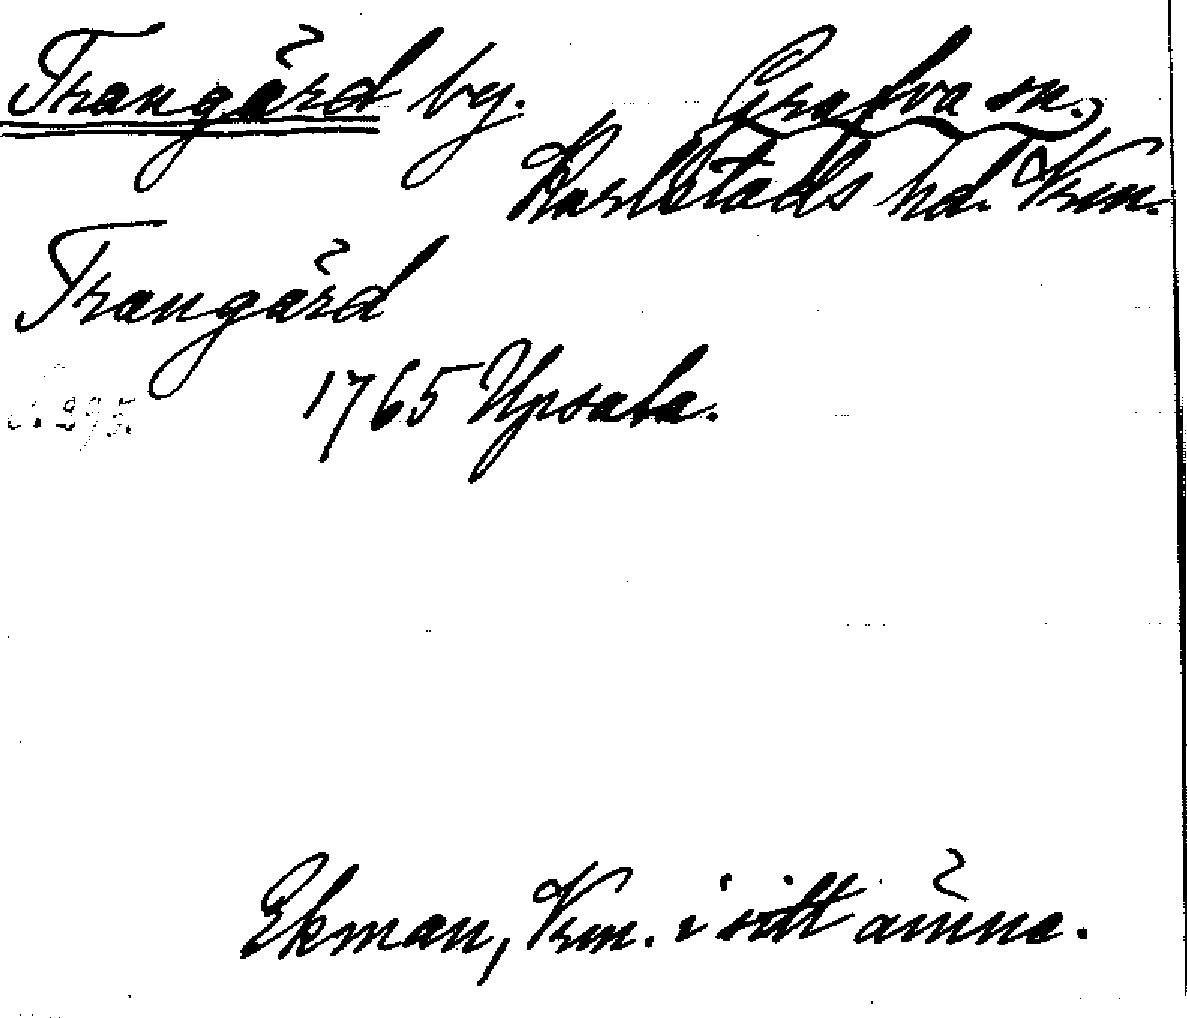 Trangård by. Grafva sn.
Karlstads hd. Vrm.
Trangård
1765 Upsala.
S. 295.
Ekman, Vrm. i sitt ämne.